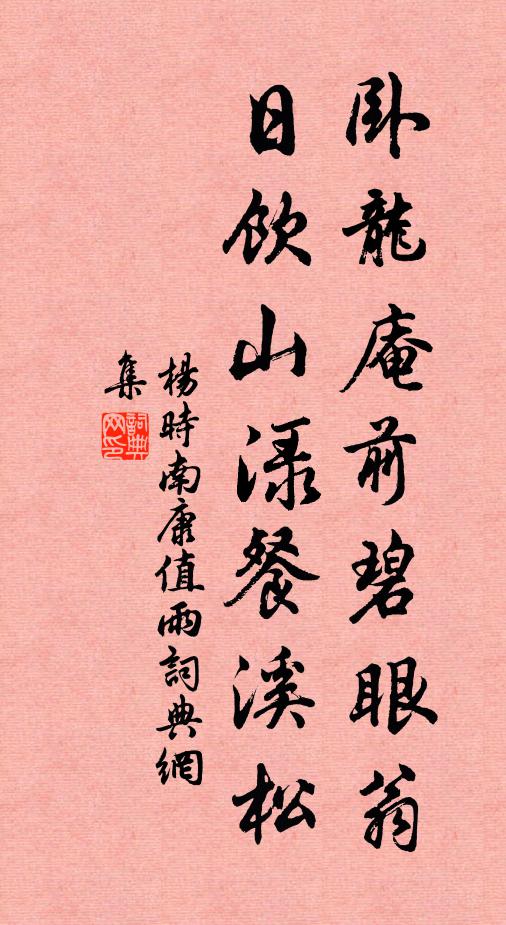 臥龍庵前碧眼翁
日飲山淥餐溪松
楊時南康值雨詞典網
集
詞典網印